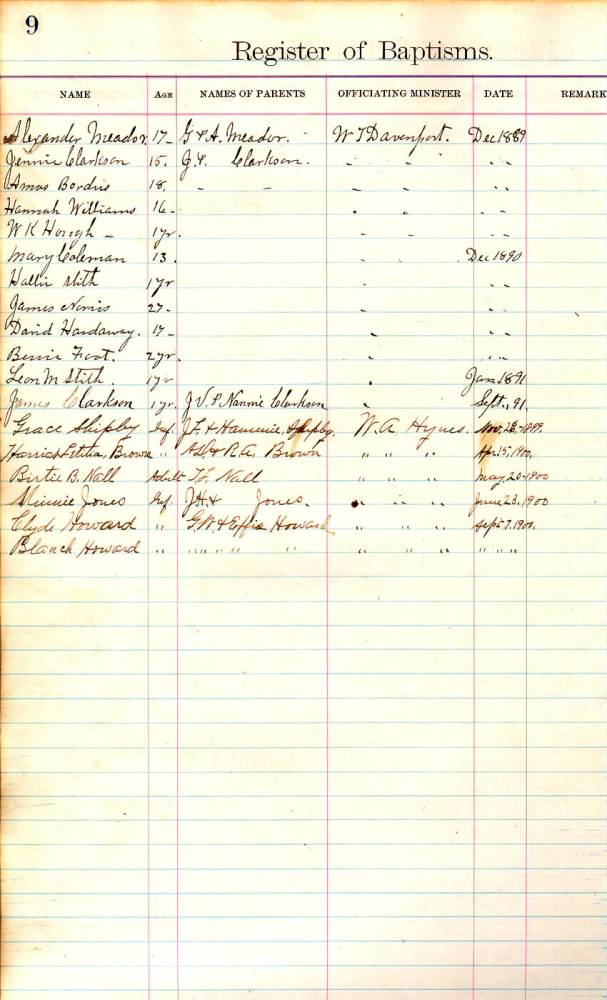 9
Register of Baptisms.
NAME AGE NAMES OF PARENTS OFFICIATING MINISTER DATE REMARK
Alexander Meador 17 - G & A. Meador. W T Davenport. Dec 1889
Jennie Clarkson 15. J. Clarkson. " " " "
Amos 18. - - " " " "
Hannah Williams 16 - " " " "
W K - 1 yr. " " " "
Mary Coleman 13. " " Dec 1890
Hallie Stith 1 yr " " "
James Norris 27 - " " "
David Hardaway. 17 - " " "
Foot. 2 yr. " " "
Leon M Stith. 1 yr " Jan 1891
James Clarkson 1 yr. J. V. & Nannie Clarkson " Sept., 91.
Grace Shipley Inf. J. L. & Shipley. W. A. Hynes. Nov. 28, 1899.
Harriet Letitia, Brown " & R. A. Brown " " " Apr. 15, 1900.
Birtie B. Nall Adult T. L. Nall " " " May 20 - 1900
Minnie Jones Inf. J. H. & Jones. " " " June 23, 1900
Clyde Howard " G. W. & Effie Howard " " " Sept. 7, 1900.
Blanch Howard " " " " " " " " " " " "